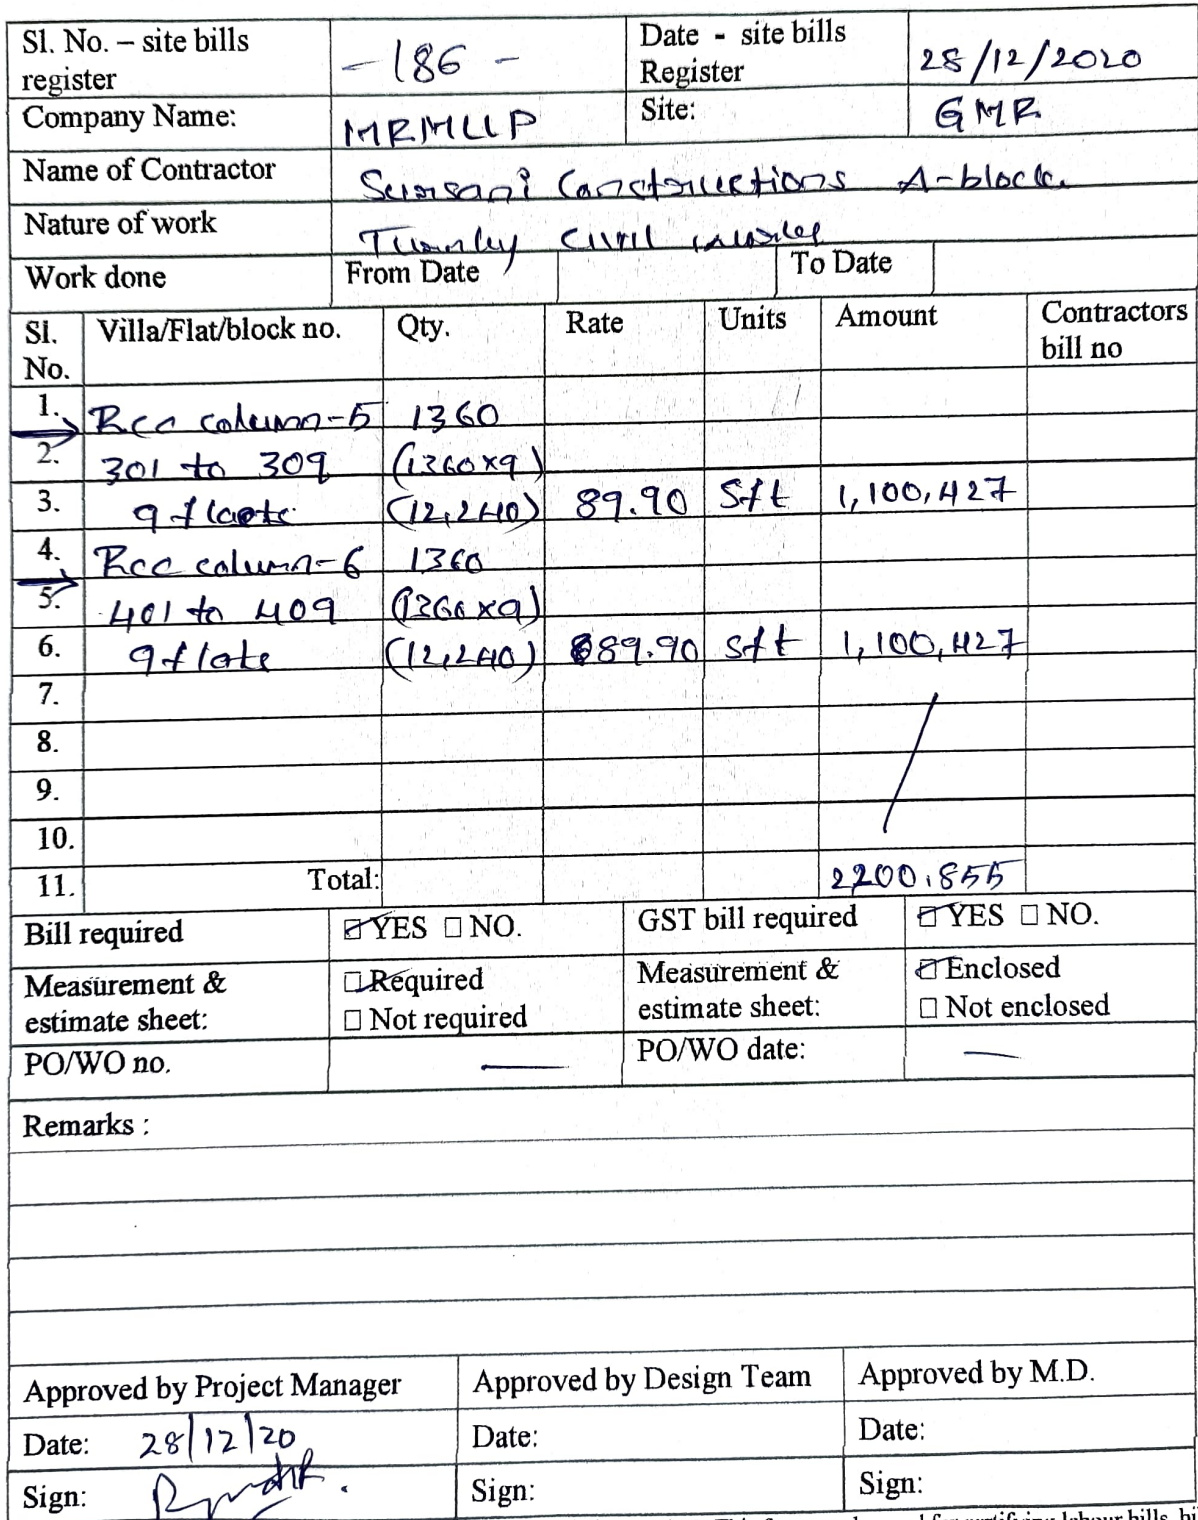 Sl. No. – site bills register - 186 - Date - site bills Register 28/12/2020
Company Name: MRMLLP Site: GMR
Name of Contractor Sursani Constructions A-block.
Nature of work Turnkey Civil works
Work done From Date To Date
Sl. No. Villa/Flat/block no. Qty. Rate Units Amount Contractors bill no
1. Rcc column-5 1360
2. 301 to 309 (1360x9)
3. 9 flats (12,240) 89.90 Sft 1,100,427
4. Rcc column-6 1360
5. 401 to 409 (1360x9)
6. 9 flats (12,240) 89.90 sft 1,100,427
7.
8.
9.
10.
11. Total: 2200.855
Bill required ☑ YES ☐ NO. GST bill required ☑ YES ☐ NO.
Measurement & estimate sheet: ☑ Required ☐ Not required Measurement & estimate sheet: ☑ Enclosed ☐ Not enclosed
PO/WO no. — PO/WO date: —
Remarks :
Approved by Project Manager Approved by Design Team Approved by M.D.
Date: 28/12/20 Date: Date:
Sign: Sign: Sign: